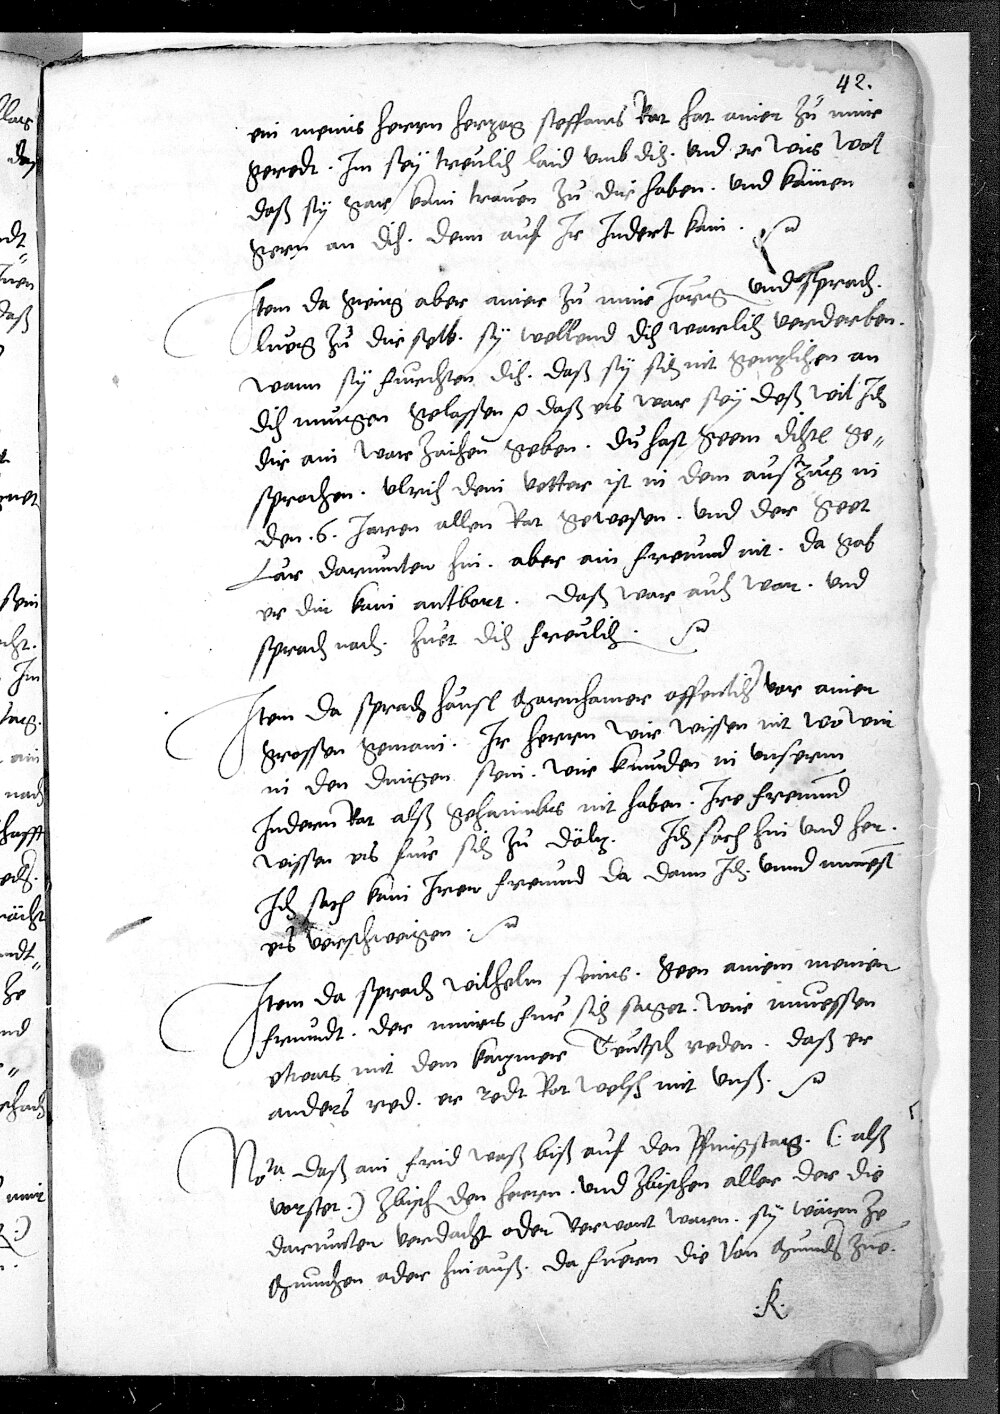 42.
ein meins herrn herzog steffans Rat hat ainer zu mir
geredt. Im sey treulich laid umb dich. und er wis wol
daß sy gar kain trauen zu dir haben. und kämen
gern an dich. denn auf Ir Indert kain.
Item da gieng aber ainer zu mir Jörg und sprach.
lueg zu dir selb. sy wellend dich warlich verderben.
wann sy fürchten dich. daß sy sich nit genzlichen an
dich mugen gelassen daß es war sey deß wil Ich
dir ain war zaichen geben. du hast geen dichtl ge„
sprochen. ulrich dein vetter ist in dem auszug in
den .6. Jaren allen Rat gewesen. und der geet
Lär darunter hin. aber ain freund nit. da gab
er dir kain antwort. daß war auch war. und
sprach noch. huet dich freulich.
Item da sprach hänsl Garnhamer offentlich vor ainer
grossen gemain. Ir herren wir wissen nit wo wir
in den dingen sein. wir kunden in unserm
Indern Rat alß gehaimbs nit haben. Ire freund
wissen es fur sich zu dölz. Ich sach hin und her.
Ich sach kain Iren freund da dann Ich. unnd muest
es verschweigen.
Item da sprach wilhelm seins. geen ainem meinen
freundt. der mirs fur sich saget. wir muessen
etwas mit dem kazmer Teutsch reden. daß er
anders red. er redt Rot welsch mit unß.
Nota daß ain frid waß biß auf den Pfingstag. (: alß
vorstet.) zbisch den herrn. und zbischen aller der die
darunter verdacht oder verwont waren. sy wären ze
Gmunchen oder hin auß. da fueren die von Gmunch zue.
.k.